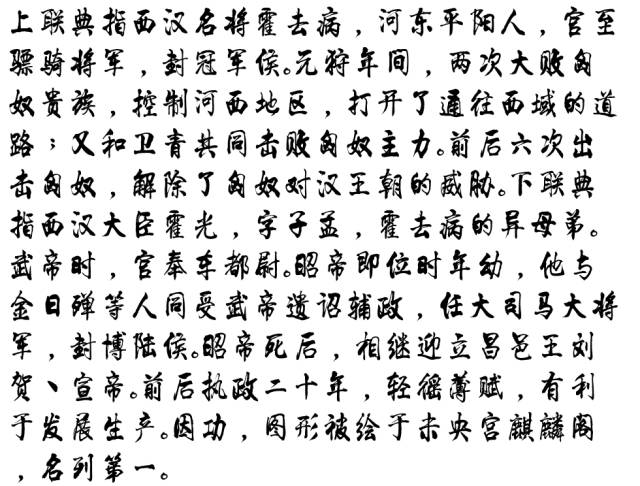 上联典指西汉名将霍去病，河东平阳人，官至
骠骑将军，封冠军侯。元狩年间，两次大败匈
奴贵族，控制河西地区，打开了通往西域的道
路；又和卫青共同击败匈奴主力。前后六次出
击匈奴，解除了匈奴对汉王朝的威胁。下联典
指西汉大臣霍光，字子孟，霍去病的异母弟。
武帝时，官奉车都尉。昭帝即位时年幼，他与
金日殚等人同受武帝遗诏辅政，任大司马大将
军，封博陆侯。昭帝死后，相继迎立昌邑王刘
贺、宣帝。前后执政二十年，轻徭薄赋，有利
于发展生产。因功，图形被绘于未央宫麒麟阁
，名列第一。